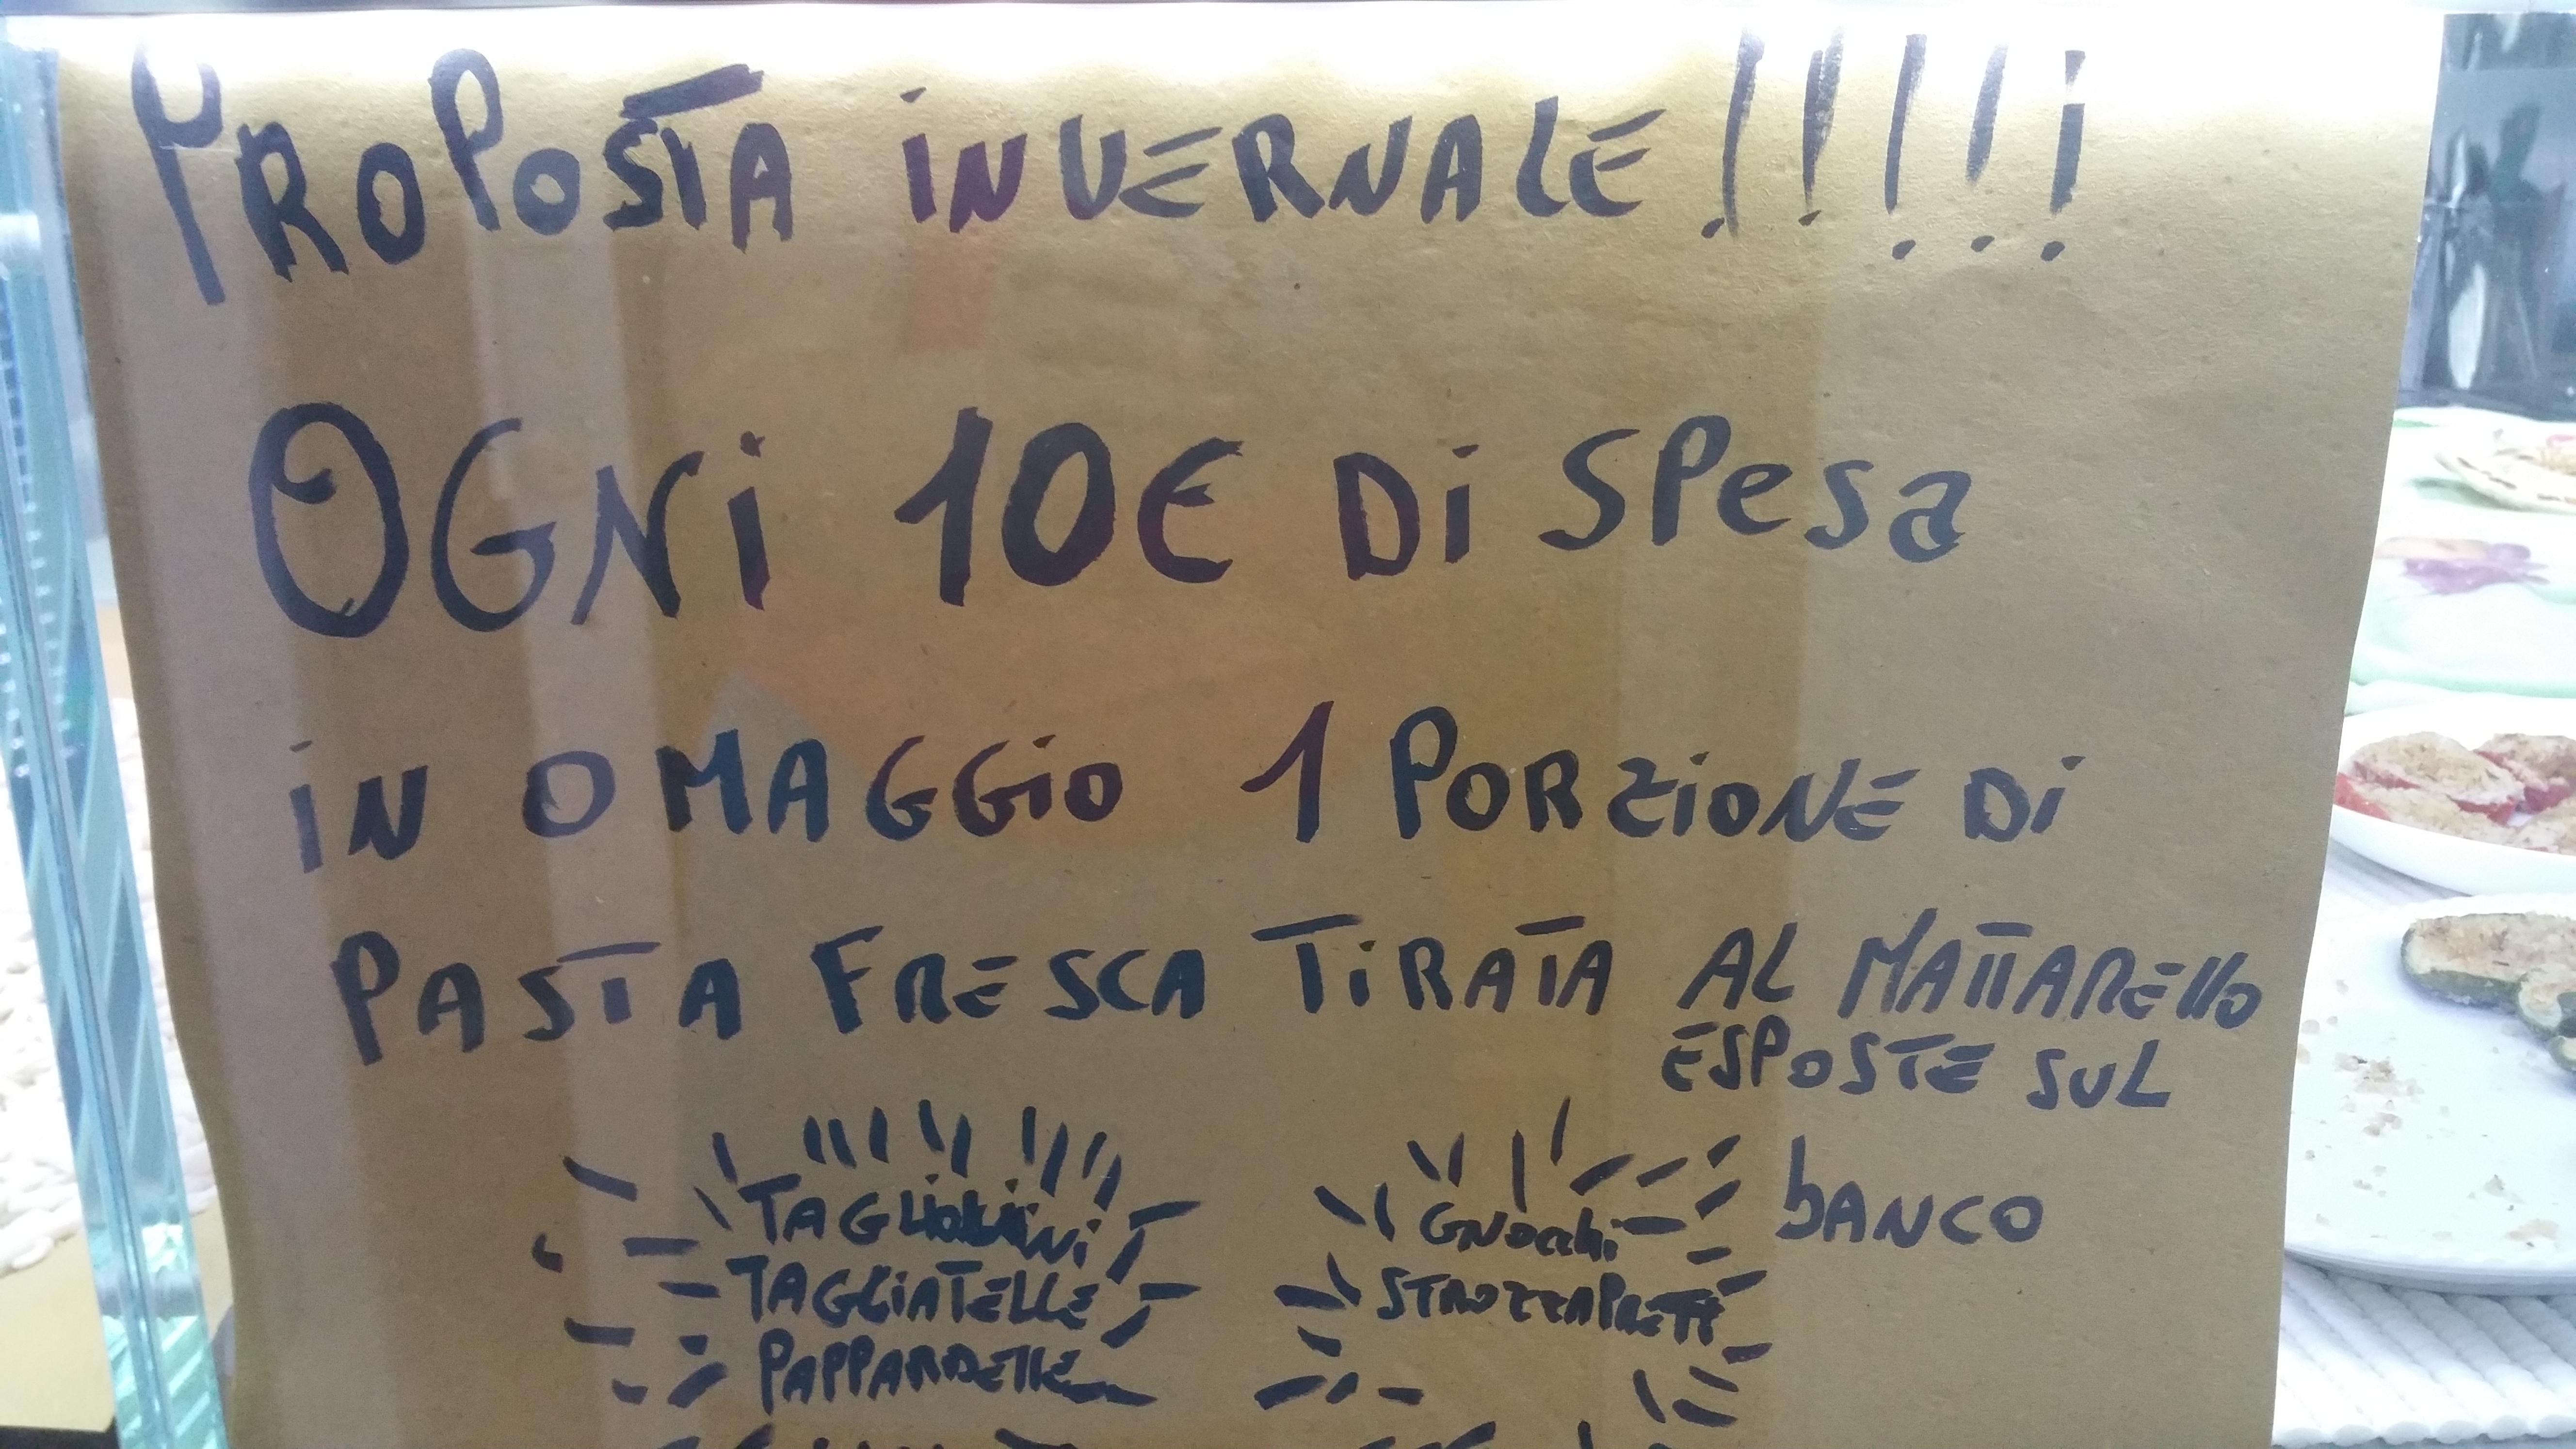 PROPOSTA INVERNALE!!!!!
OGNI 10€ DI SPESA
IN OMAGGIO 1 PORZIONE DI
PASTA FRESCA TIRATA AL MATTARELLO
ESPOSTE SUL
BANCO
TAGLIOLINI
TAGLIATELLE
PAPPARDELLE
GNOCCHI
STROZZAPRETI